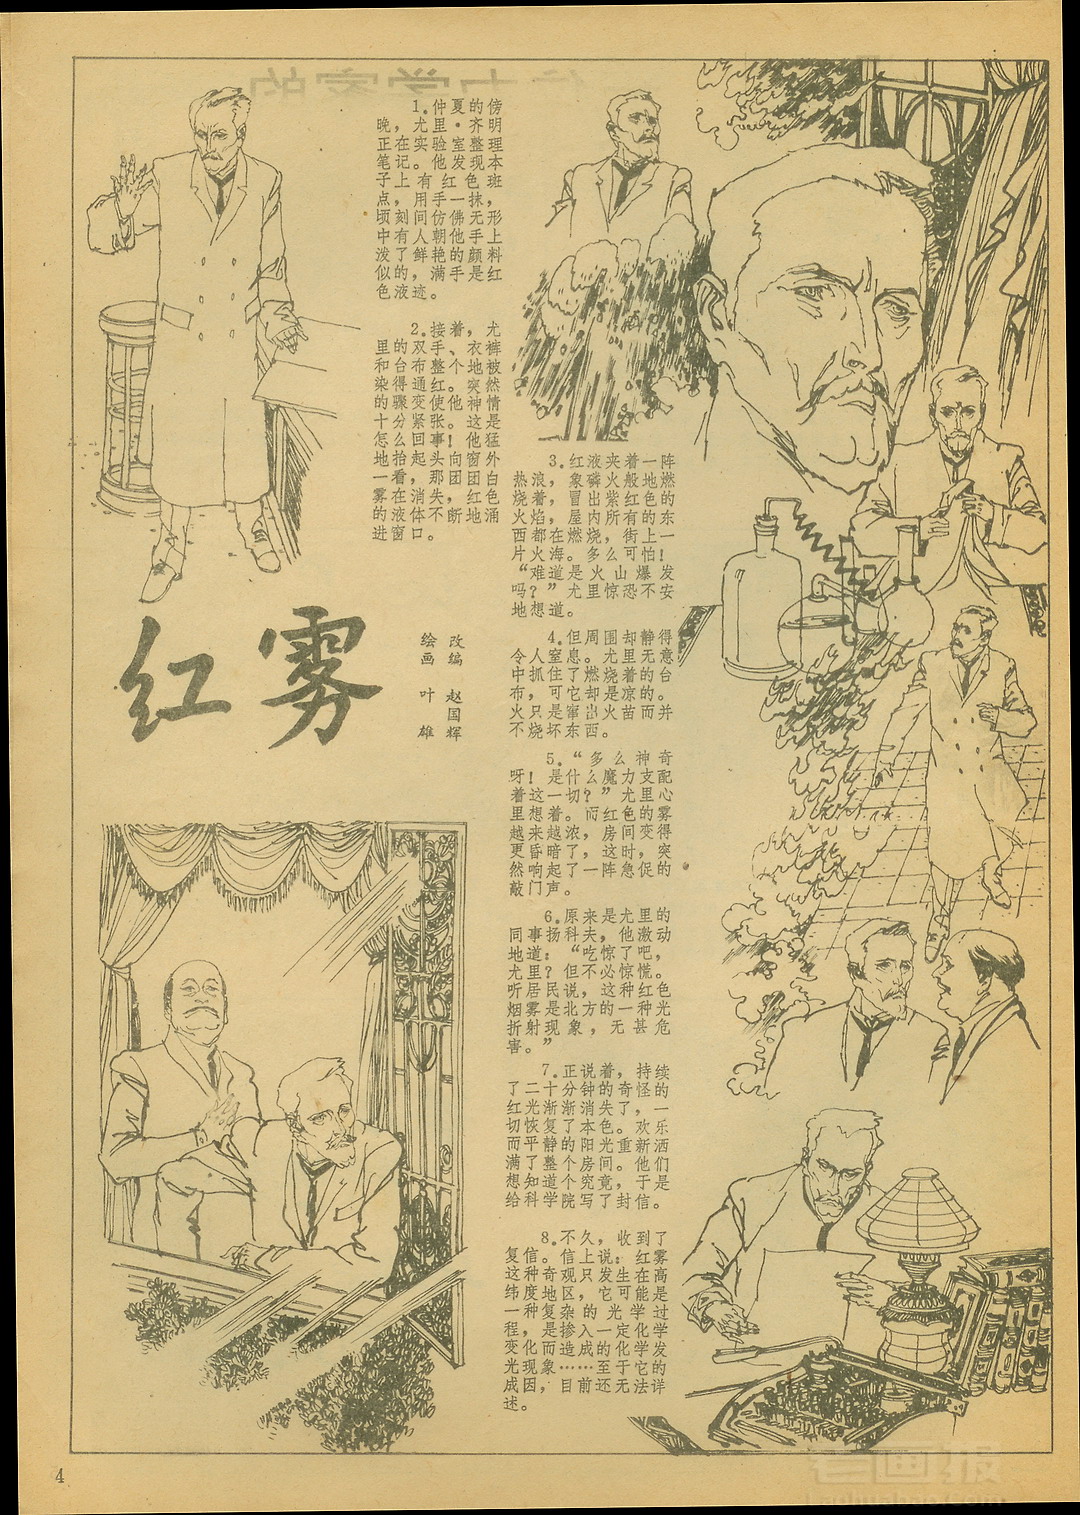 1.仲夏的傍
晚，尤里·齐明
正在实验室整理
笔记。他发现本
子上有红色斑
点，用手一抹，
顷刻间仿佛无形
中有人朝他手上
泼了鲜艳的颜料
似的，满手是红
色液迹。
2.接着，尤
里的双手、衣裤
和台布整个地被
染得通红。突然
的骤变使他神情
十分紧张。这是
怎么回事！他猛
地抬起头向窗外
一看，那团团白
雾在消失，红色
的液体不断地涌
进窗口。
红雾
改编 赵国辉
绘画 叶雄
3.红液夹着一阵
热浪，象磷火般地燃
烧着，冒出紫红色的
火焰，屋内所有的东
西都在燃烧，街上一
片火海。多么可怕！
“难道是火山爆发
吗？”尤里惊恐不安
地想道。
4.但周围却静得
令人窒息。尤里无意
中抓住了燃烧着的台
布，可它却是凉的。
火只是窜出火苗而并
不烧坏东西。
5.“多么神奇
呀！是什么魔力支配
着这一切？”尤里心
里想着。而红色的雾
越来越浓，房间变得
更昏暗了，这时，突
然响起了一阵急促的
敲门声。
6.原来是尤里的
同事扬科夫，他激动
地道：“吃惊了吧，
尤里？但不必惊慌。
听居民说，这种红色
烟雾是北方的一种光
折射现象，无甚危
害。”
7.正说着，持续
了二十分钟的奇怪的
红光渐渐消失了，一
切恢复了本色。欢乐
而平静的阳光重新洒
满了整个房间。他们
想知道个究竟，于是
给科学院写了封信。
8.不久，收到了
复信。信上说：红雾
这种奇观只发生在高
纬度地区，它可能是
一种复杂的光学过
程，是掺入一定化学
变化而造成的化学发
光现象……至于它的
成因，目前还无法详
述。
4
老画报